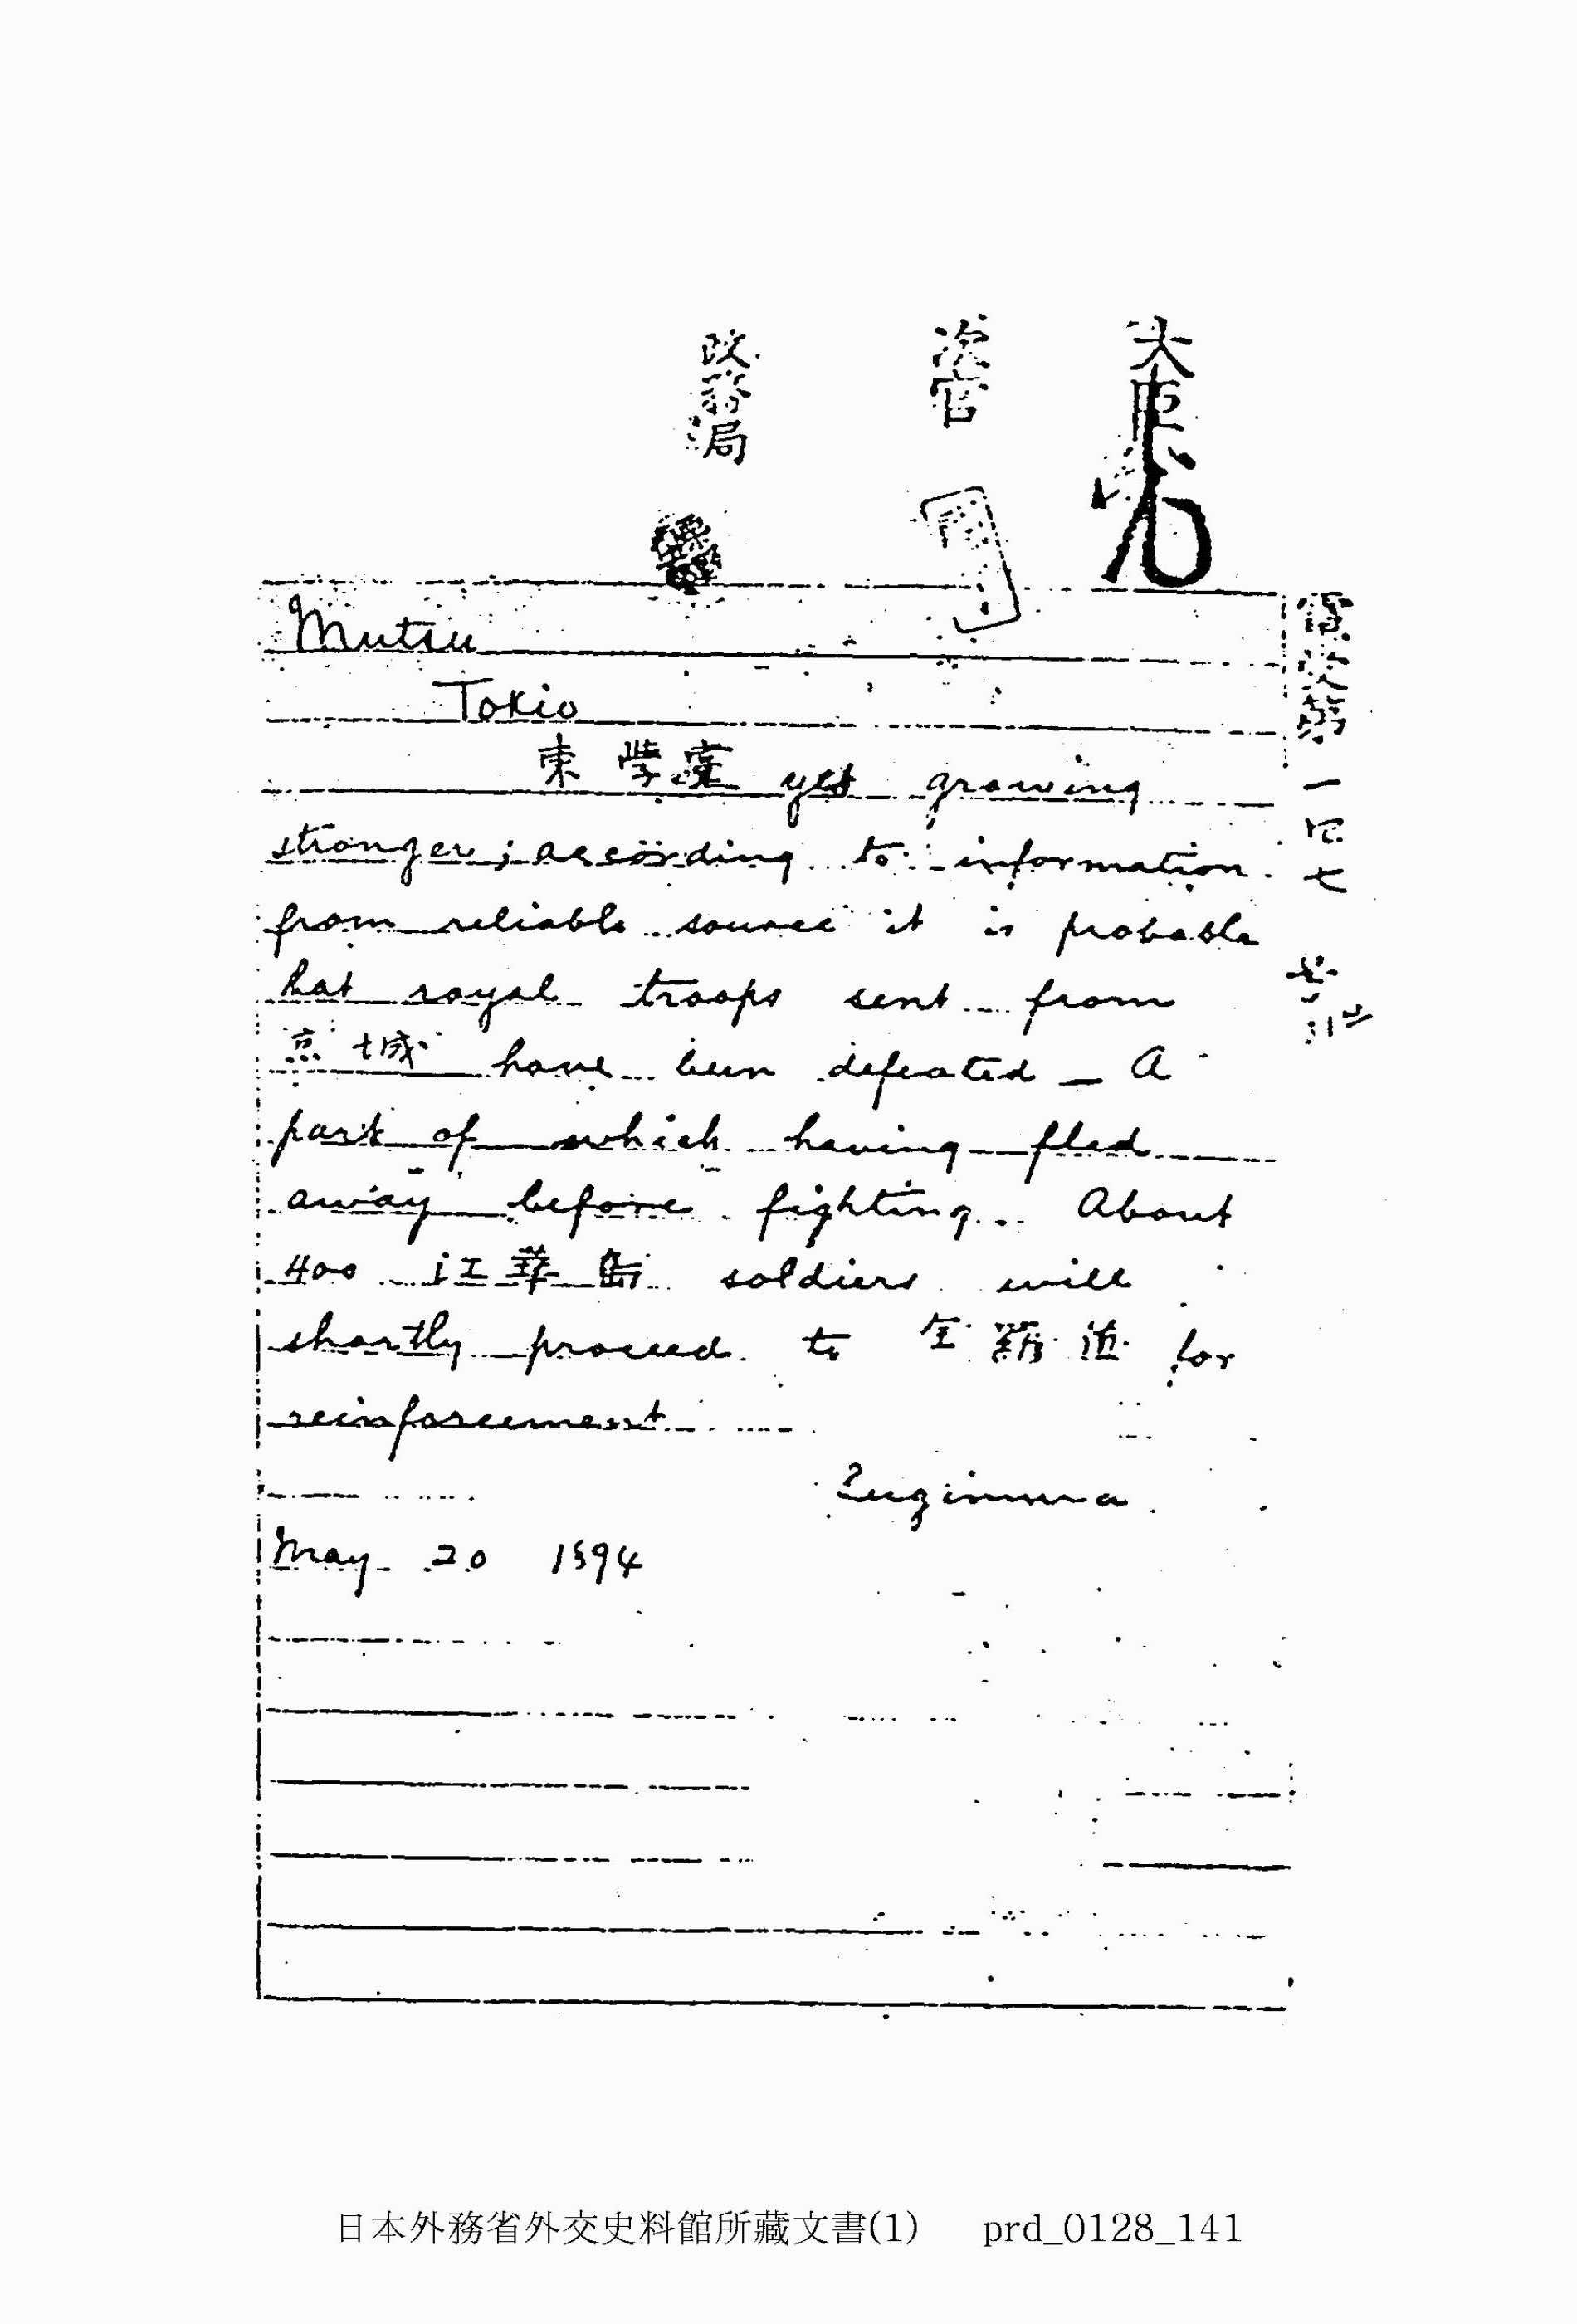 大臣
次官
政務局
電受第一四七号
Mutsu
Tokio
東学党 yet growing
stronger; according to information
from reliable source it is probable
hat royal troops sent from
京城 have been defeated — A
part of which having fled
away before fighting. About
400 江華島 soldiers will
shortly proceed to 全羅道 for
reinforcement
Sugimura
May 20 1894
日本外務省外交史料館所藏文書(1) prd_0128_141